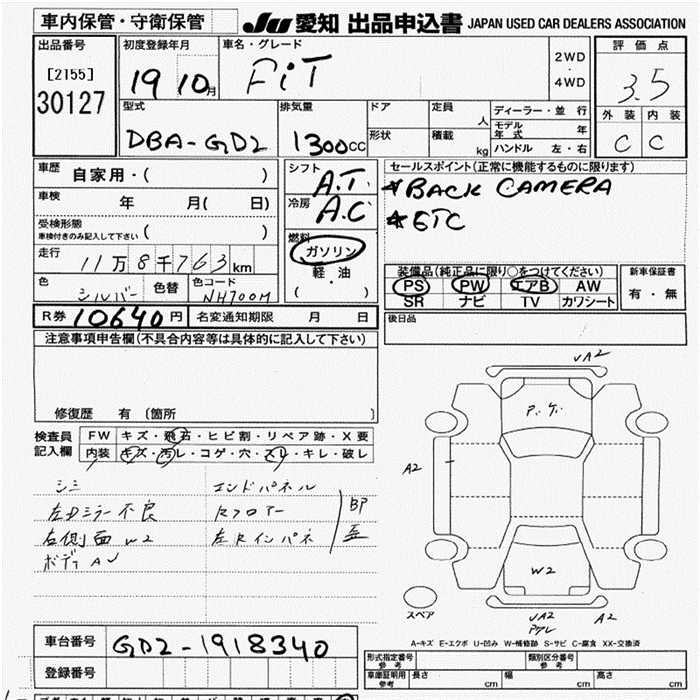 車内保管・守衛保管
JU 愛知 出品申込書 JAPAN USED CAR DEALERS ASSOCIATION
出品番号
[2155]
30127
初度登録年月
19 10月
車名・グレード
FiT
2WD
・
4WD
評価点
3.5
外装 内装
C C
型式
DBA-GD2
排気量
1300cc
ドア
形状
定員 人
積載 kg
ディーラー・並行
モデル年式 年
ハンドル 左・右
車歴 自家用・( )
車検 年 月( 日)
受検形態
車検付きのみ記入して下さい ( )
走行 11万8千763km
色 シルバー 色替 色コード NH700M
シフト A.T.
冷房 A.C
燃料
ガソリン
軽・油
( )
セールスポイント(正常に機能するものに限ります)
*BACK CAMERA
*ETC
装備品(純正品に限り○をつけてください)
PS PW エアB AW
SR ナビ TV カワシート
新車保証書
有・無
R券 10640円 名変通知期限 月 日
後日品
注意事項申告欄(不具合内容等は具体的に記入して下さい)
修復歴 有 〔箇所 〕
検査員記入欄
FW キズ・飛石・ヒビ割・リペア跡・X要
内装 キズ・汚レ・コゲ・穴・スレ・キレ・破レ
シミ
左Dミラー不良
右側面 W2
エンドパネル
Rフロアー
左Rインパネ
BP
UA2
P.ケ.
A2
W2
UA2
A2
スペア
A-キズ E-エクボ U-凹み W-補修跡 S-サビ C-腐食 XX-交換済
車台番号 GD2-1918340
登録番号
形式指定番号 参考
類別区分番号 参考
車庫証明用 参考 長さ cm 幅 cm 高さ cm